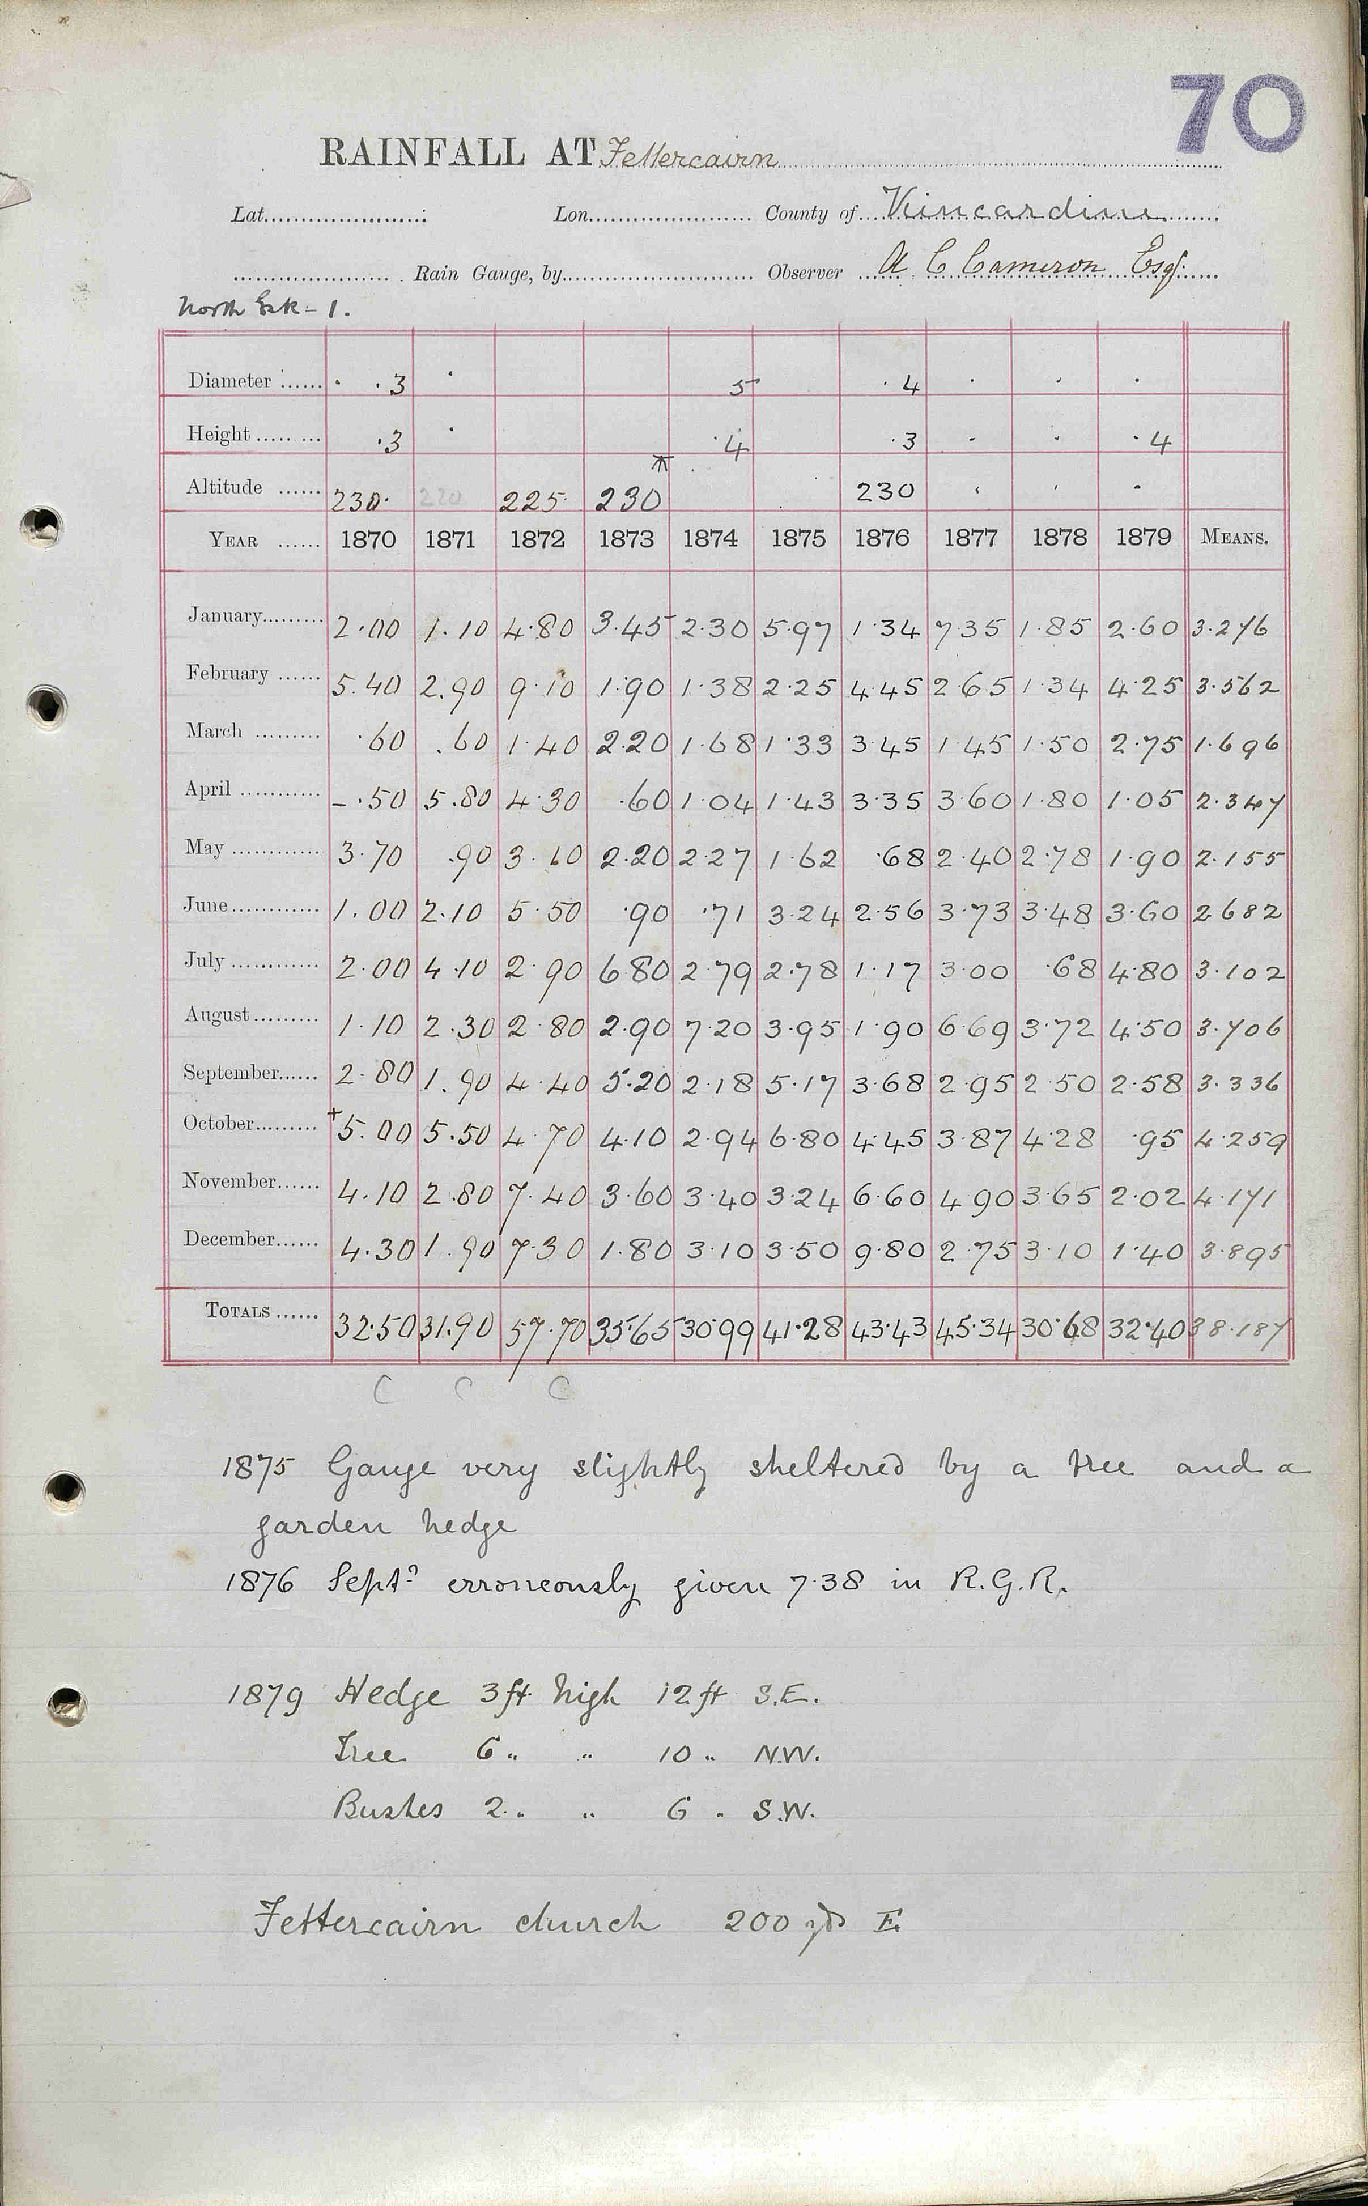 70
RAINFALL AT Fettercairn
Lat. Lon. County of Kincardine
Rain Gauge, by Observer A C Cameron Esq.
North Esk - 1.
Diameter · ·3 · 5 ·4 · · ·
Height ·3 · ·4 ·3 · · ·4
Altitude 230· 220 225· 230 230 · · ·
YEAR 1870 1871 1872 1873 1874 1875 1876 1877 1878 1879 MEANS.
January 2·00 1.10 4·80 3·45 2·30 5·97 1·34 7·35 1·85 2·60 3·276
February 5.40 2.90 9·10 1·90 1·38 2·25 4·45 2·65 1·34 4·25 3·562
March ·60 .60 1·40 2·20 1·68 1·33 3·45 1·45 1·50 2·75 1·696
April –·50 5.80 4·30 ·60 1·04 1·43 3·35 3·60 1·80 1·05 2·347
May 3·70 ·90 3·10 2·20 2·27 1·62 ·68 2·40 2·78 1·90 2·155
June 1.00 2.10 5·50 ·90 ·71 3·24 2·56 3·73 3·48 3·60 2·682
July 2·00 4·10 2·90 6·80 2·79 2·78 1·17 3·00 ·68 4·80 3·102
August 1·10 2·30 2·80 2·90 7·20 3·95 1·90 6·69 3·72 4·50 3·706
September 2·80 1.90 4·40 5·20 2·18 5·17 3·68 2·95 2·50 2·58 3·336
October +5.00 5.50 4·70 4·10 2·94 6·80 4·45 3·87 4·28 ·95 4·259
November 4.10 2.80 7·40 3·60 3·40 3·24 6·60 4·90 3·65 2·02 4·171
December 4.30 1.90 7·30 1·80 3·10 3·50 9·80 2·75 3·10 1·40 3·895
TOTALS 32·50 31.90 57·70 35·65 30·99 41·28 43·43 45·34 30·68 32·40 38·187
C C C
1875 Gauge very slightly sheltered by a tree and a
garden hedge
1876 Septr erroneously given 7·38 in R.G.R.
1879 Hedge 3 ft high 12 ft S.E.
Tree 6 " " 10 " N.W.
Bushes 2 " " 6 " S.W.
Fettercairn church 200 yds E